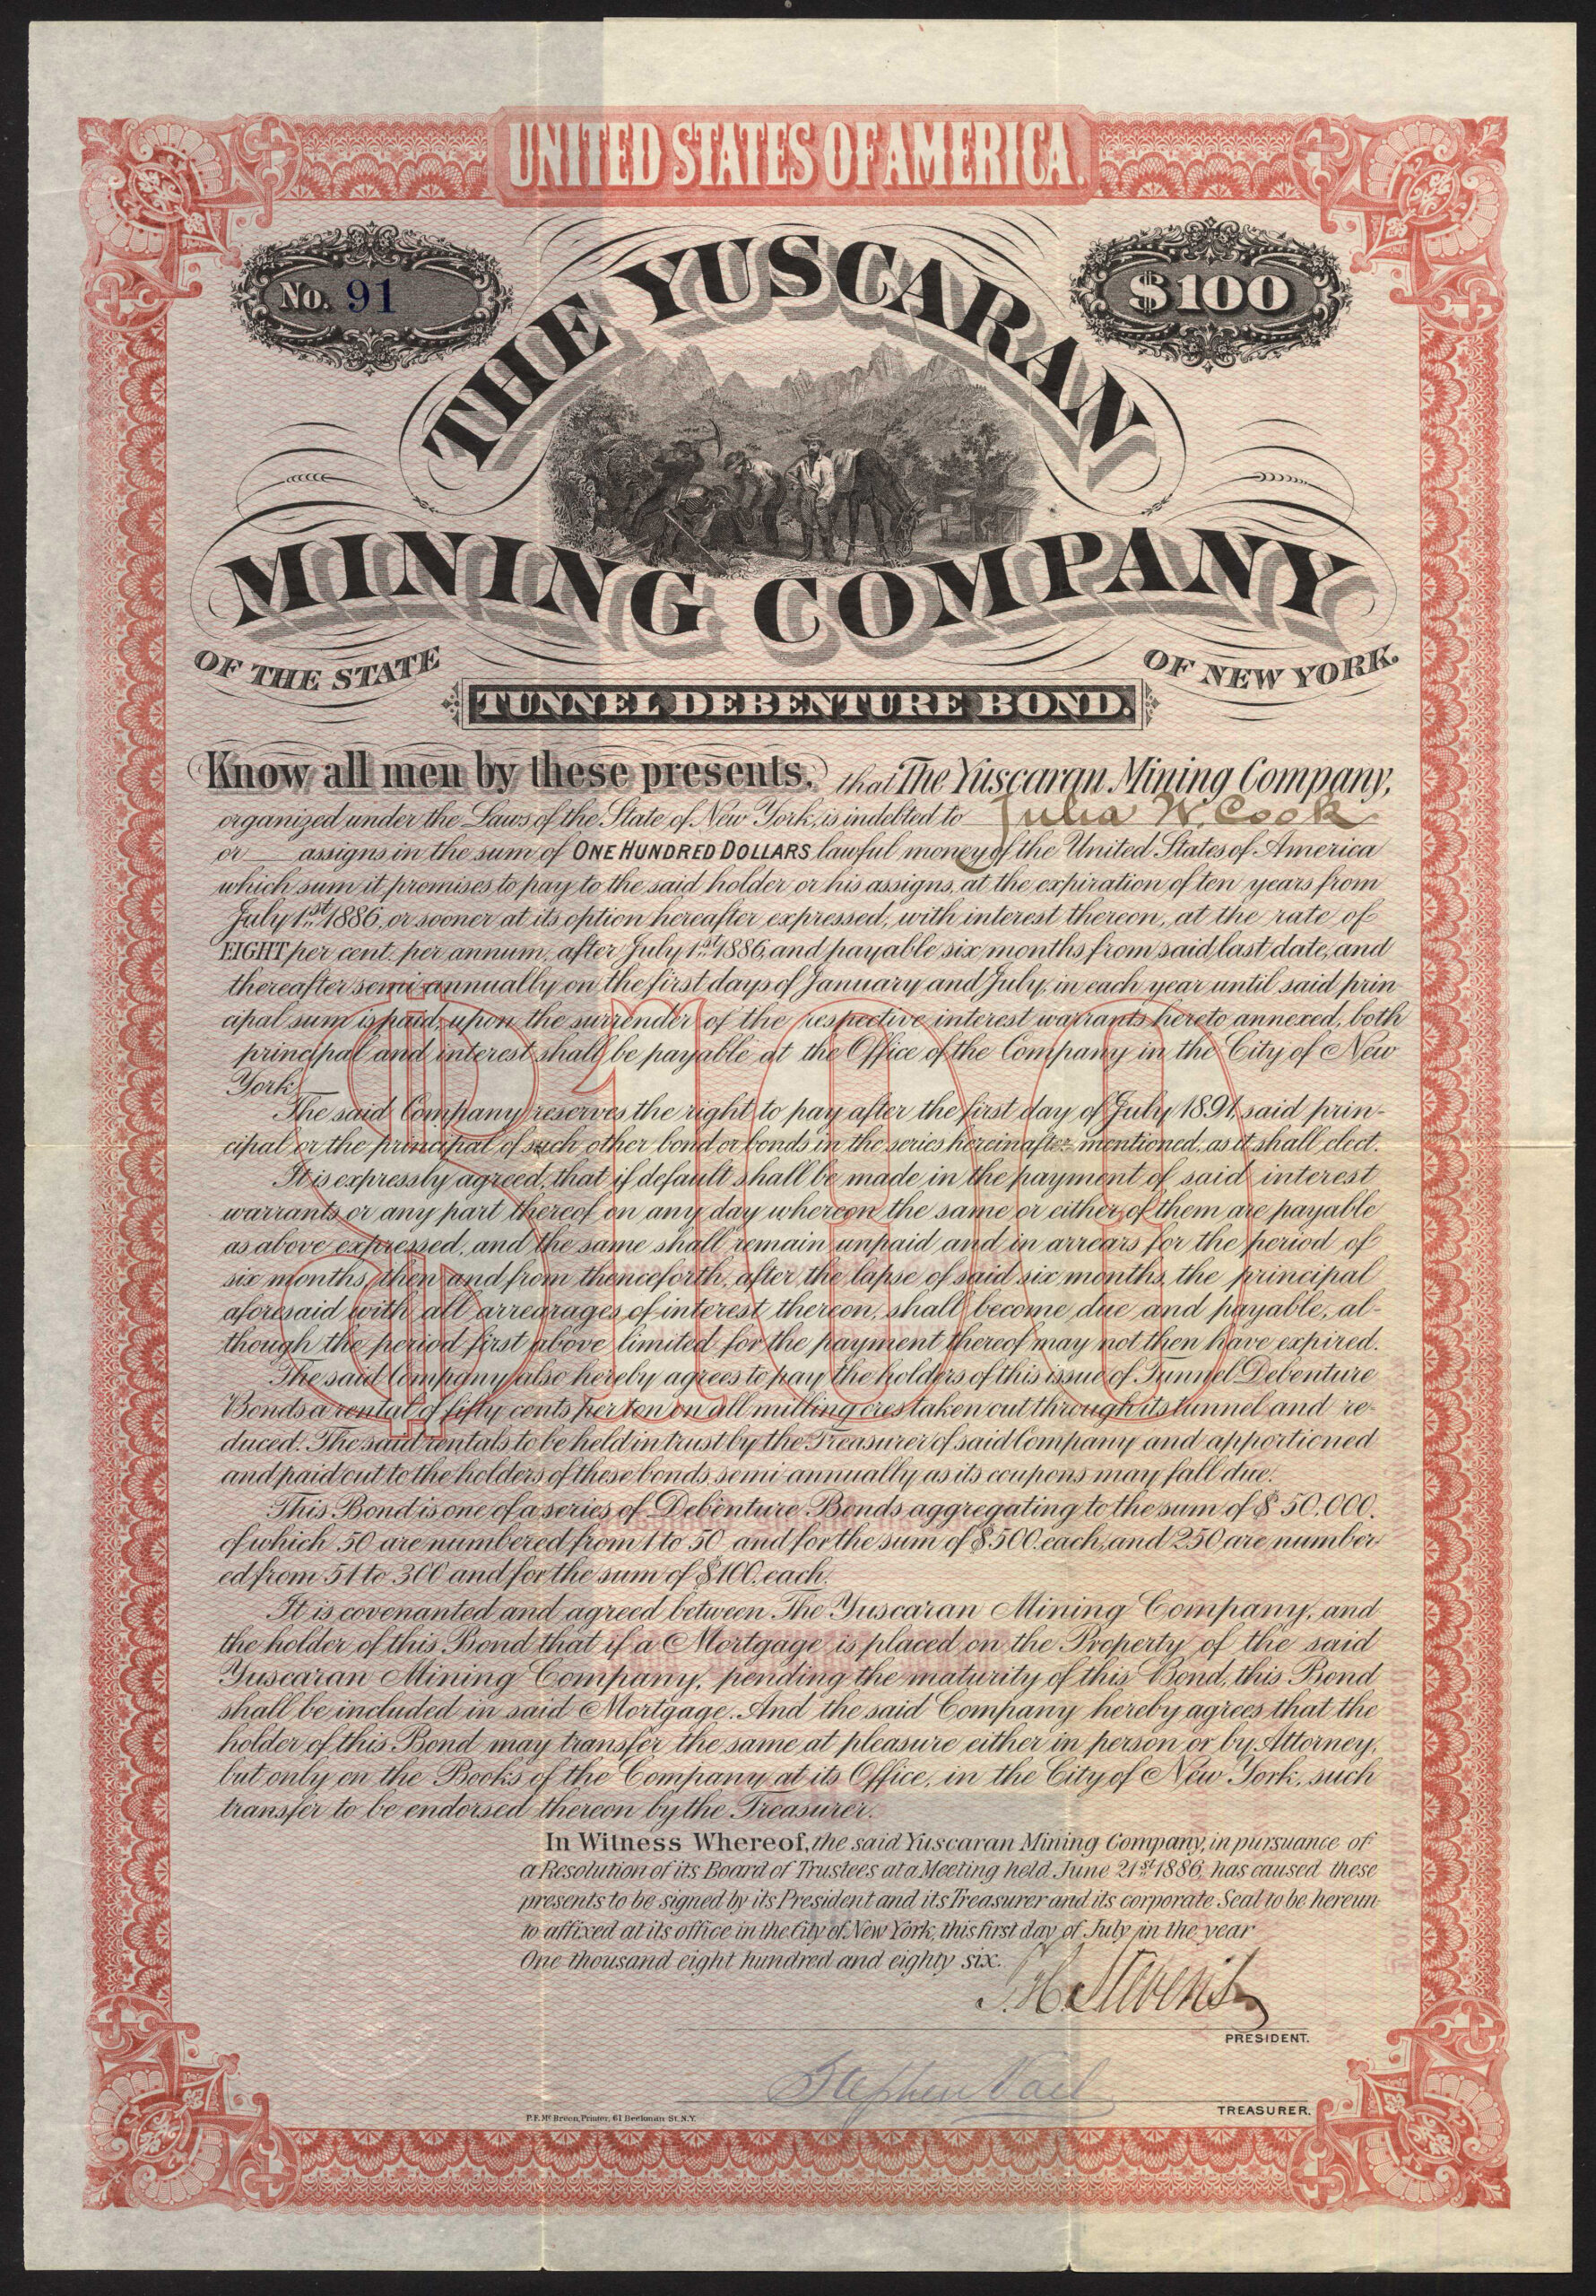 UNITED STATES OF AMERICA.
No. 91
$100
THE YUSCARAN
MINING COMPANY
OF THE STATE
OF NEW YORK.
TUNNEL DEBENTURE BOND.
Know all men by these presents, that The Yuscaran Mining Company,
organized under the Laws of the State of New York, is indebted to Julia W. Cook
or assigns in the sum of ONE HUNDRED DOLLARS lawful money of the United States of America
which sum it promises to pay to the said holder or his assigns, at the expiration of ten years from
July 1st 1886, or sooner at its option hereafter expressed, with interest thereon, at the rate of
EIGHT per cent. per annum, after July 1st 1886, and payable six months from said last date, and
thereafter semi-annually on the first days of January and July, in each year until said prin-
cipal sum is paid, upon the surrender of the respective interest warrants hereto annexed, both
principal and interest shall be payable at the Office of the Company in the City of New
York.
The said Company reserves the right to pay after the first day of July 1891, said prin-
cipal or the principal of such other bond or bonds in the series hereinafter mentioned, as it shall elect.
It is expressly agreed, that if default shall be made in the payment of said interest
warrants or any part thereof on any day whereon the same or either of them are payable
as above expressed, and the same shall remain unpaid and in arrears for the period of
six months, then and from thenceforth, after the lapse of said six months, the principal
aforesaid with all arrearages of interest thereon, shall become due and payable, al-
though the period first above limited for the payment thereof may not then have expired.
The said Company also hereby agrees to pay the holders of this issue of Tunnel Debenture
Bonds a rental of fifty cents per ton on all milling ores taken out through its tunnel and re-
duced. The said rentals to be held in trust by the Treasurer of said Company and apportioned
and paid out to the holders of these bonds, semi-annually as its coupons may fall due.
This Bond is one of a series of Debenture Bonds aggregating to the sum of $50.000.
of which 50 are numbered from 1 to 50 and for the sum of $500. each, and 250 are number-
ed from 51 to 300 and for the sum of $100. each.
It is covenanted and agreed between The Yuscaran Mining Company, and
the holder of this Bond that if a Mortgage is placed on the Property of the said
Yuscaran Mining Company, pending the maturity of this Bond, this Bond
shall be included in said Mortgage. And the said Company hereby agrees that the
holder of this Bond may transfer the same at pleasure either in person or by Attorney,
but only on the Books of the Company at its Office, in the City of New York, such
transfer to be endorsed thereon by the Treasurer.
In Witness Whereof, the said Yuscaran Mining Company, in pursuance of
a Resolution of its Board of Trustees at a Meeting held June 21st 1886, has caused these
presents to be signed by its President and its Treasurer and its corporate Seal to be hereun-
to affixed at its office in the City of New York, this first day of July in the year
One thousand eight hundred and eighty six.
Stevens
PRESIDENT.
Stephen Vail
TREASURER.
P.F. Mc Breen, Printer, 61 Beekman St. N.Y.
$100